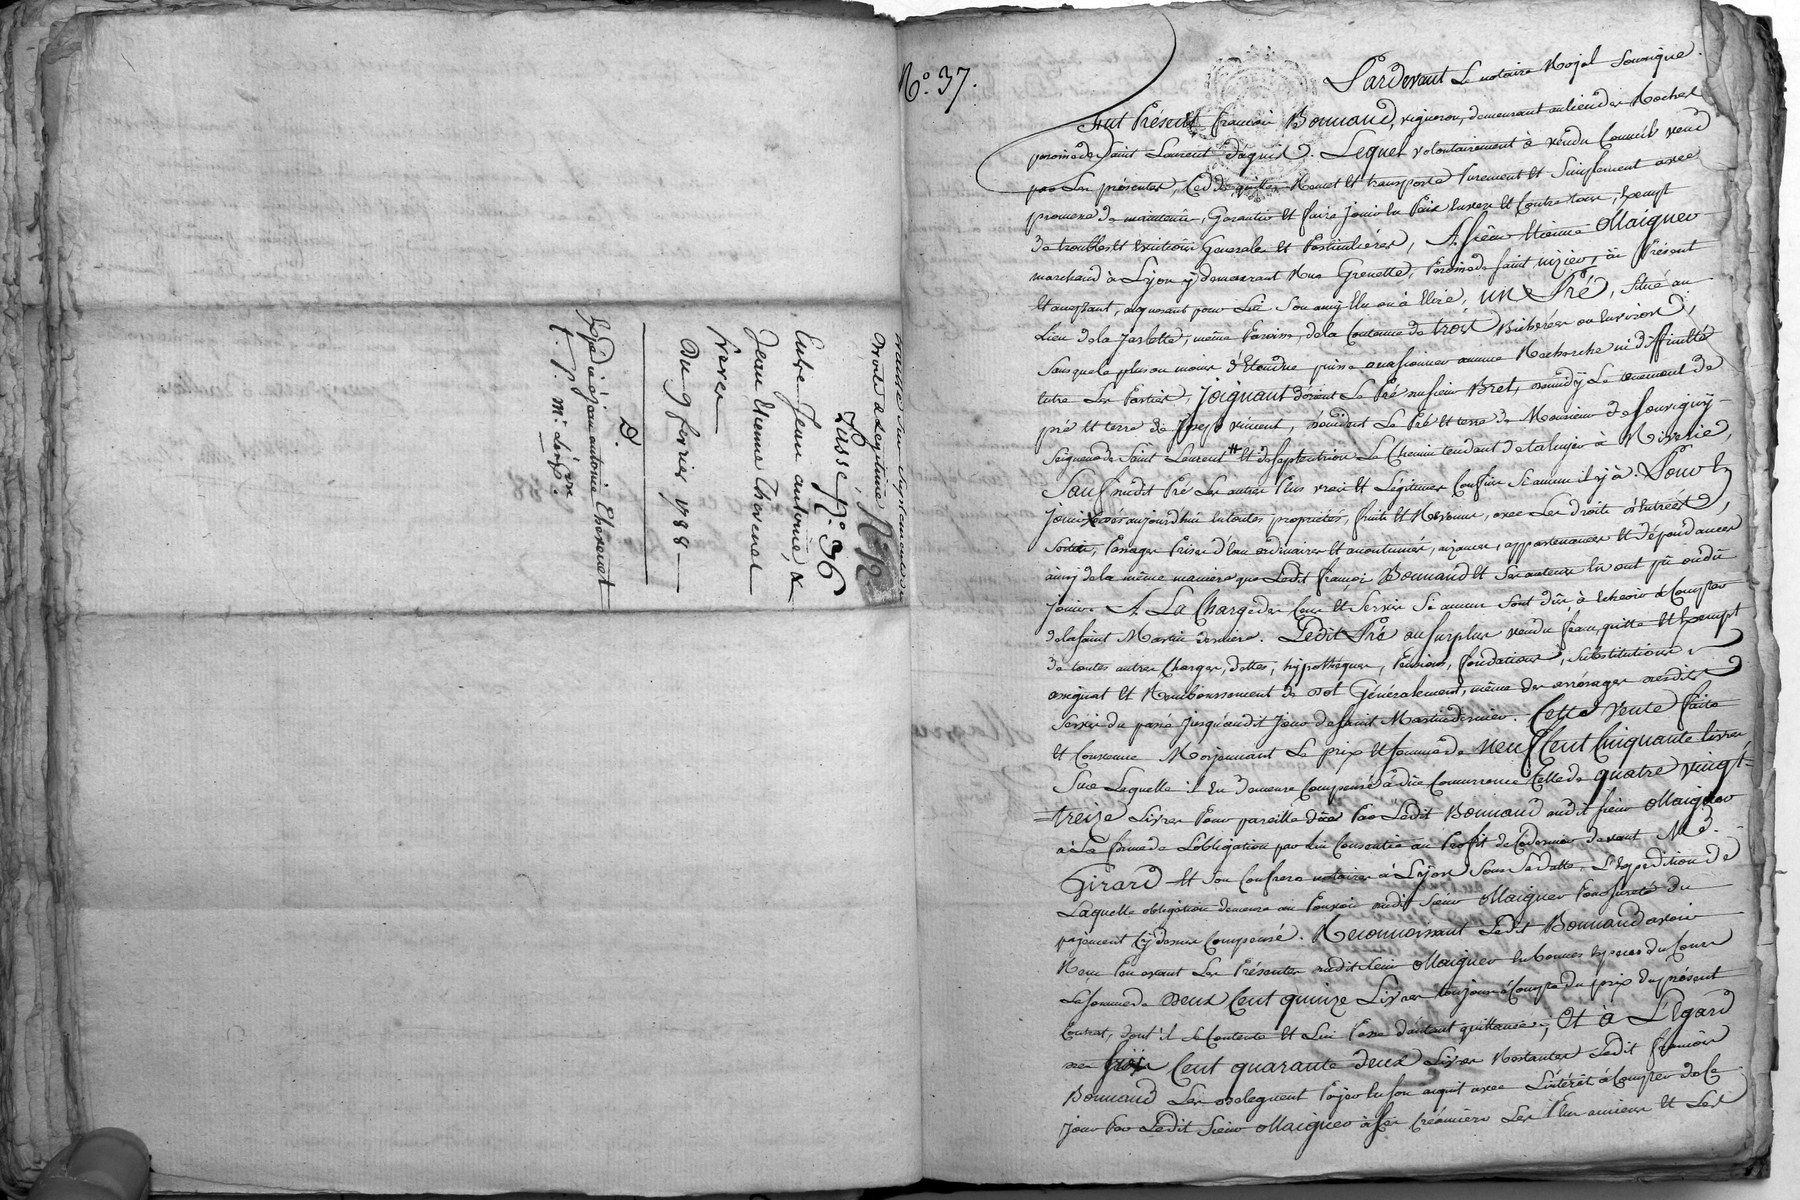 traité sur supplément de
droits de légitime N.º 12
Liasse, N.º 36
Entre Jean antoine, &
Jean Etienne Thevenet
freres
Du 9 fevrier 1788
D.
Expédié à jean antoine Thevenet
N.º 37.
Pardevant Le notaire Royal Soussigné.
Fut Présent françois Bonnand, vigneron, demeurant au lieu des Roches
paroisse de Saint Laurent d'agnis. Lequel volontairement à vendu Comme il vend
par Les présentes, Cedde, quitte, Remet et transporte Purement et Simplement avec
promesse de maintenir, Garantir et faire Jouir En Paix Envers et Contre tous, Exempt
de troubles et Evictions Generales et Particulières, A. sieur Etienne Maignier
marchand à Lyon y demeurant Rue Grenette, Paroisse Saint nizier, ici Présent
Et acceptant, acquerant pour Lui Son amy Elu ou à Elire, un Pré, Situé au
Lieu de la Jaslette, même Paroisse, de la Contenue de trois Bicherées ou Environ,
Sans que le plus ou moins d'Etendue puisse occasionner aucune Recherche ni difficulté
Entre Les Parties, Joignant d'orient Le Pré du sieur Bret, de midy Le tenement de
pré et terre de Joseph vincent, d'occident Le Pré et terre de Monsieur de Souvigny
Seigneur de Saint Laurent et de Septentrion Le Chemin tendant de taluyer à Riverie,
Sauf dudit Pré Les autres Plus vrais et Légitimes Confins Si aucuns il y à. Pour En
Jouir dès aujourd'hui En toutes propriétés, fruits et Revenus, avec Les droits d'Entrées,
Sorties, Passages Prises d'Eau ordinaires et accoutumés, aisances, appartenances et dépendances
ainsy de la même maniere que Ledit françois Bonnand et Ses auteurs En ont jü ou dû
jouir. A La Charge des Cens et Servis Si aucuns Sont dûs à Echeoir à Compter
de la Saint Martin derniere. Ledit Pré au Surplus vendu franc, quitte et Exempt
de toutes autres Charges, dettes, hypothèques, Pensions, fondations, Substitutions,
assignat et Remboursement de dot Généralement, même des arrérages desdits
Servis du passé Jusqu'audit Jour de Saint Martin dernier. Cette vente faite
et Convenue Moyennant Le prix et Somme de neuf Cent Cinquante livres
Sur Laquelle il En demeure Compensé à düe Concurrence Celle de quatre vingt=
=treize Livres Pour pareille düe Par Ledit Bonnand audit Sieur Maignier
à La forme de L'obligation par lui Consentie au Profit de Ce dernier devant Me
Girard Et Son Confrere notaires à Lyon Sous Sa datte, L'Expedition de
Laquelle obligation demeure au Pouvoir dudit Sieur Maignier Pour Sureté du
payement Cy dessus Compensé. Reconnoissant Ledit Bonnand avoir
Reçu Peu avant Les Présentes dudit Sieur Maignier En bonnes Especes du Cours
La Somme de deux Cent quinze Livres toujours à Compte du prix du présent
Contrat, dont il Se Contente et Lui Passe d'autant quittance; Et à L'Egard
des Six Cent quarante deux Livres Restantes Ledit françois
Bonnand Les delegue Payer En Son acquit avec L'intérêt à Compter de Ce
jour Par Ledit Sieur Maignier à Ses Créanciers Les Plus anciens et Les